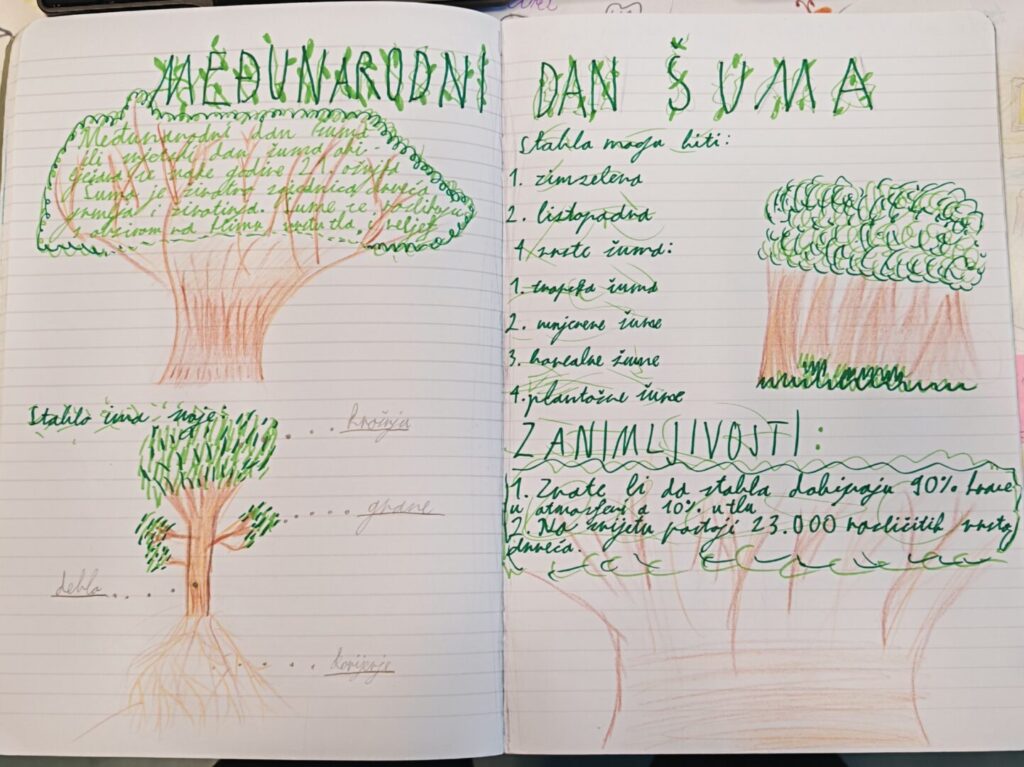 MEĐUNARODNI DAN ŠUMA
Međunarodni dan šuma
ili svjetski dan šuma obi-
ljежava se svake godine 21. ožujka
Šuma je životna zajednica drveća
grmlja i životinja. Šume se razlikuju
s obzirom na klimu, vrstu tla, i reljef
Stablo ima svoje:
krošnja
grane
deblo
korijenje
Stabla mogu biti:
1. zimzelena
2. listopadna
4 vrste šuma:
1. tropska šuma
2. umjerene šume
3. borealne šume
4. plantažne šume
ZANIMLJIVOSTI:
1. Znate li da stabla dobivaju 90% hrane
u atmosferi a 10% u tlu
2. Na svijetu postoji 23.000 različitih vrsta
drveća.